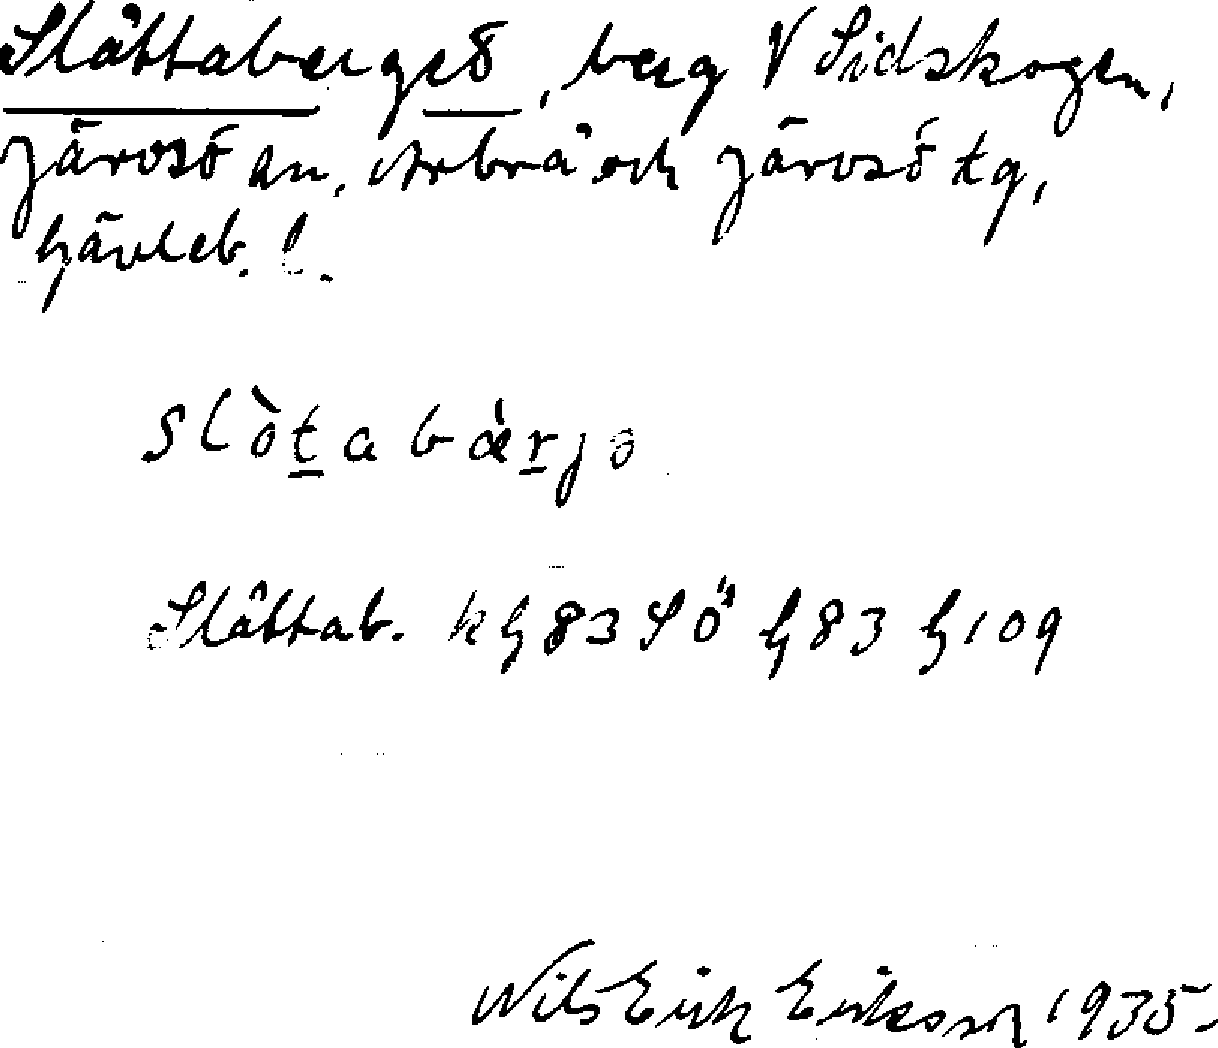 Slåttabergeð, berg V Sidskogen,
Järvsö sn, Arbrå och Järvsö tg,
Gävleb. l.
slòtabärjə
Slåttab. kg 83 SÖ G83 G109
Nils Erik Eriksson 1935.